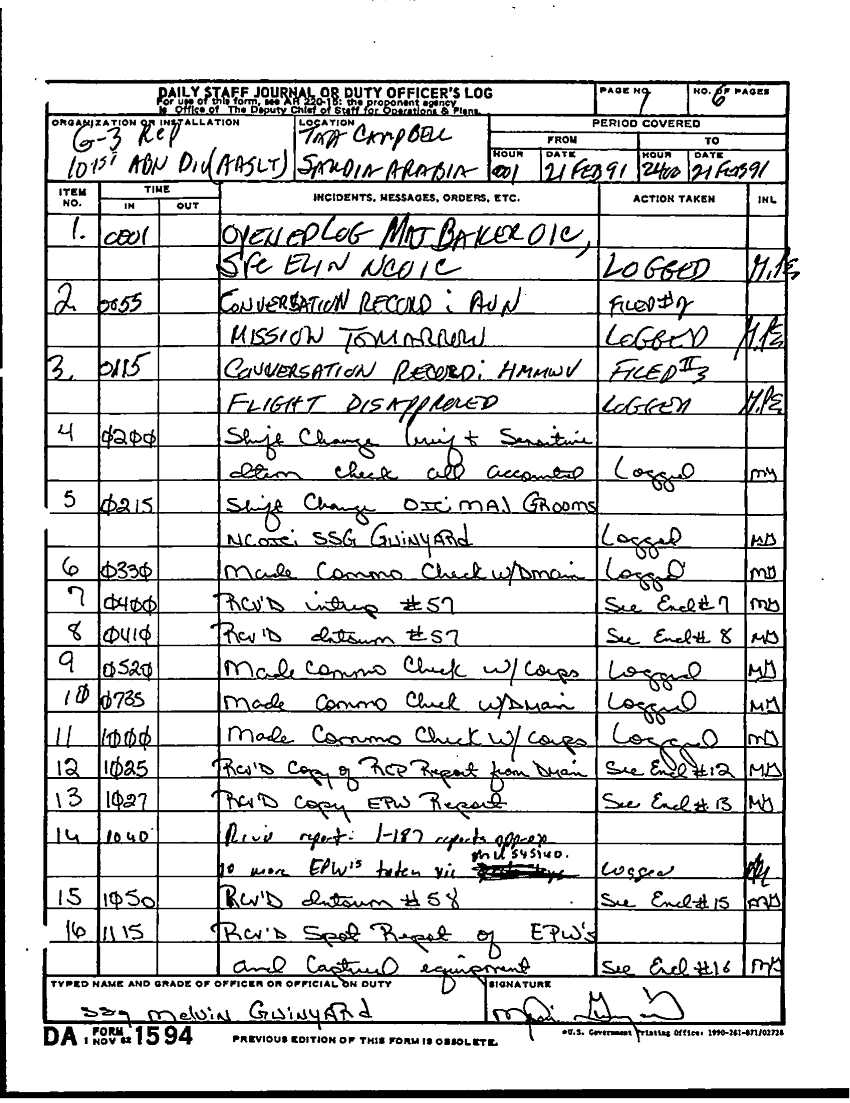 DAILY STAFF JOURNAL OR DUTY OFFICER'S LOG
For use of this form, see AR 220-15; the proponent agency
is Office of The Deputy Chief of Staff for Operations & Plans.
PAGE NO. 1
NO. OF PAGES 6
ORGANIZATION OR INSTALLATION
G-3 Rep
101ST ABN DIV (AASLT)
LOCATION
TAA CAMPBELL
SAUDIA ARABIA
PERIOD COVERED
FROM TO
HOUR DATE HOUR DATE
0001 21 FEB 91 2400 21 FEB 91
ITEM NO. TIME IN OUT INCIDENTS, MESSAGES, ORDERS, ETC. ACTION TAKEN INL
1. 0001 OPENED LOG MAJ BAKER OIC,
SFC ELIN NCOIC LOGGED M.PE
2 0055 CONVERSATION RECORD: AVN FILED #2
MISSION TOMORROW LOGGED M.PE
3. 0115 CONVERSATION RECORD: HMMWV FILED #3
FLIGHT DISAPPROVED LOGGED M.PE
4 0200 Shift Change Brief + Sensitive
Item check all accounted Logged MG
5 0215 Shift Change OIC: MAJ GROOMS
NCOIC: SSG GUINYARD Logged MG
6 0330 Made Commo Check w/Dmain Logged MG
7 0400 RCV'D intrep #57 See Encl #7 MG
8 0410 RCV'D Intsum #57 See Encl #8 MG
9 0520 Made Commo Check w/Corps Logged MG
10 0735 Made Commo Check w/Dmain Logged MG
11 1000 Made Commo Check w/Corps Logged MG
12 1025 RCV'D Copy of RCP Report from Dmain See Encl #12 MG
13 1027 RCV'D Copy EPW Report See Encl #13 MG
14 1040 Rcvd report: 1-187 reports approx
10 more EPW's taken vic MU 545140. Logged
15 1050 RCV'D Intsum #58 See Encl #15 MG
16 1115 RCV'D Spot Repot of EPW's
and Captured equipment See Encl #16 MG
TYPED NAME AND GRADE OF OFFICER OR OFFICIAL ON DUTY
SSG Melvin GUINYARD
SIGNATURE
DA FORM 1 NOV 62 1594
PREVIOUS EDITION OF THIS FORM IS OBSOLETE.
*U.S. Government Printing Office: 1990-261-871/02728